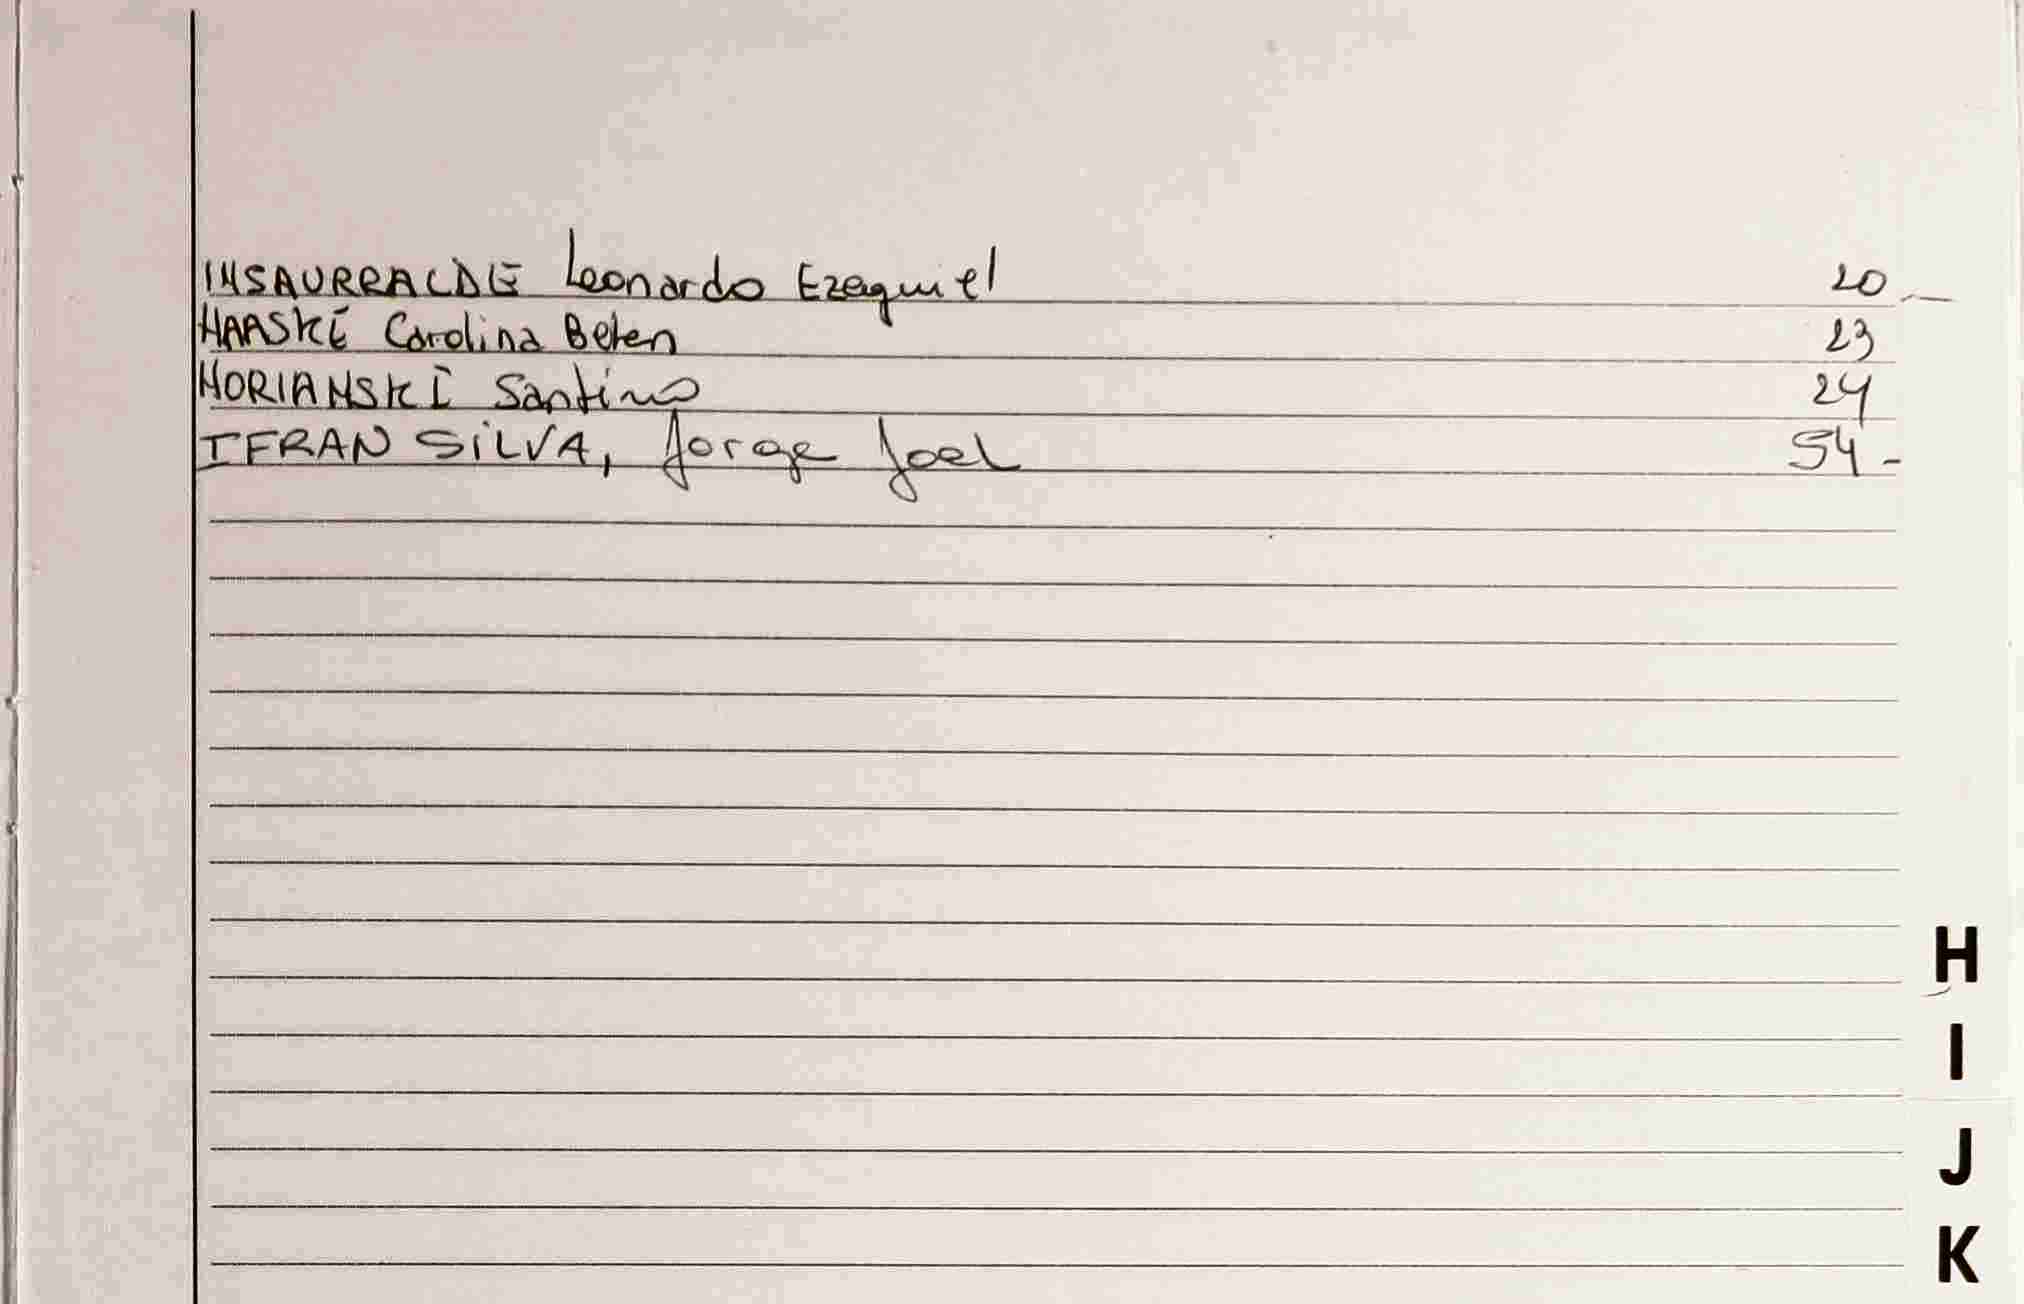 INSAURRALDE Leonardo Ezequiel 20
HAASKE Carolina Belen 23
HORIANSKI Santino 24
IFRAN SILVA, Jorge Joel 54-
H
I
J
K